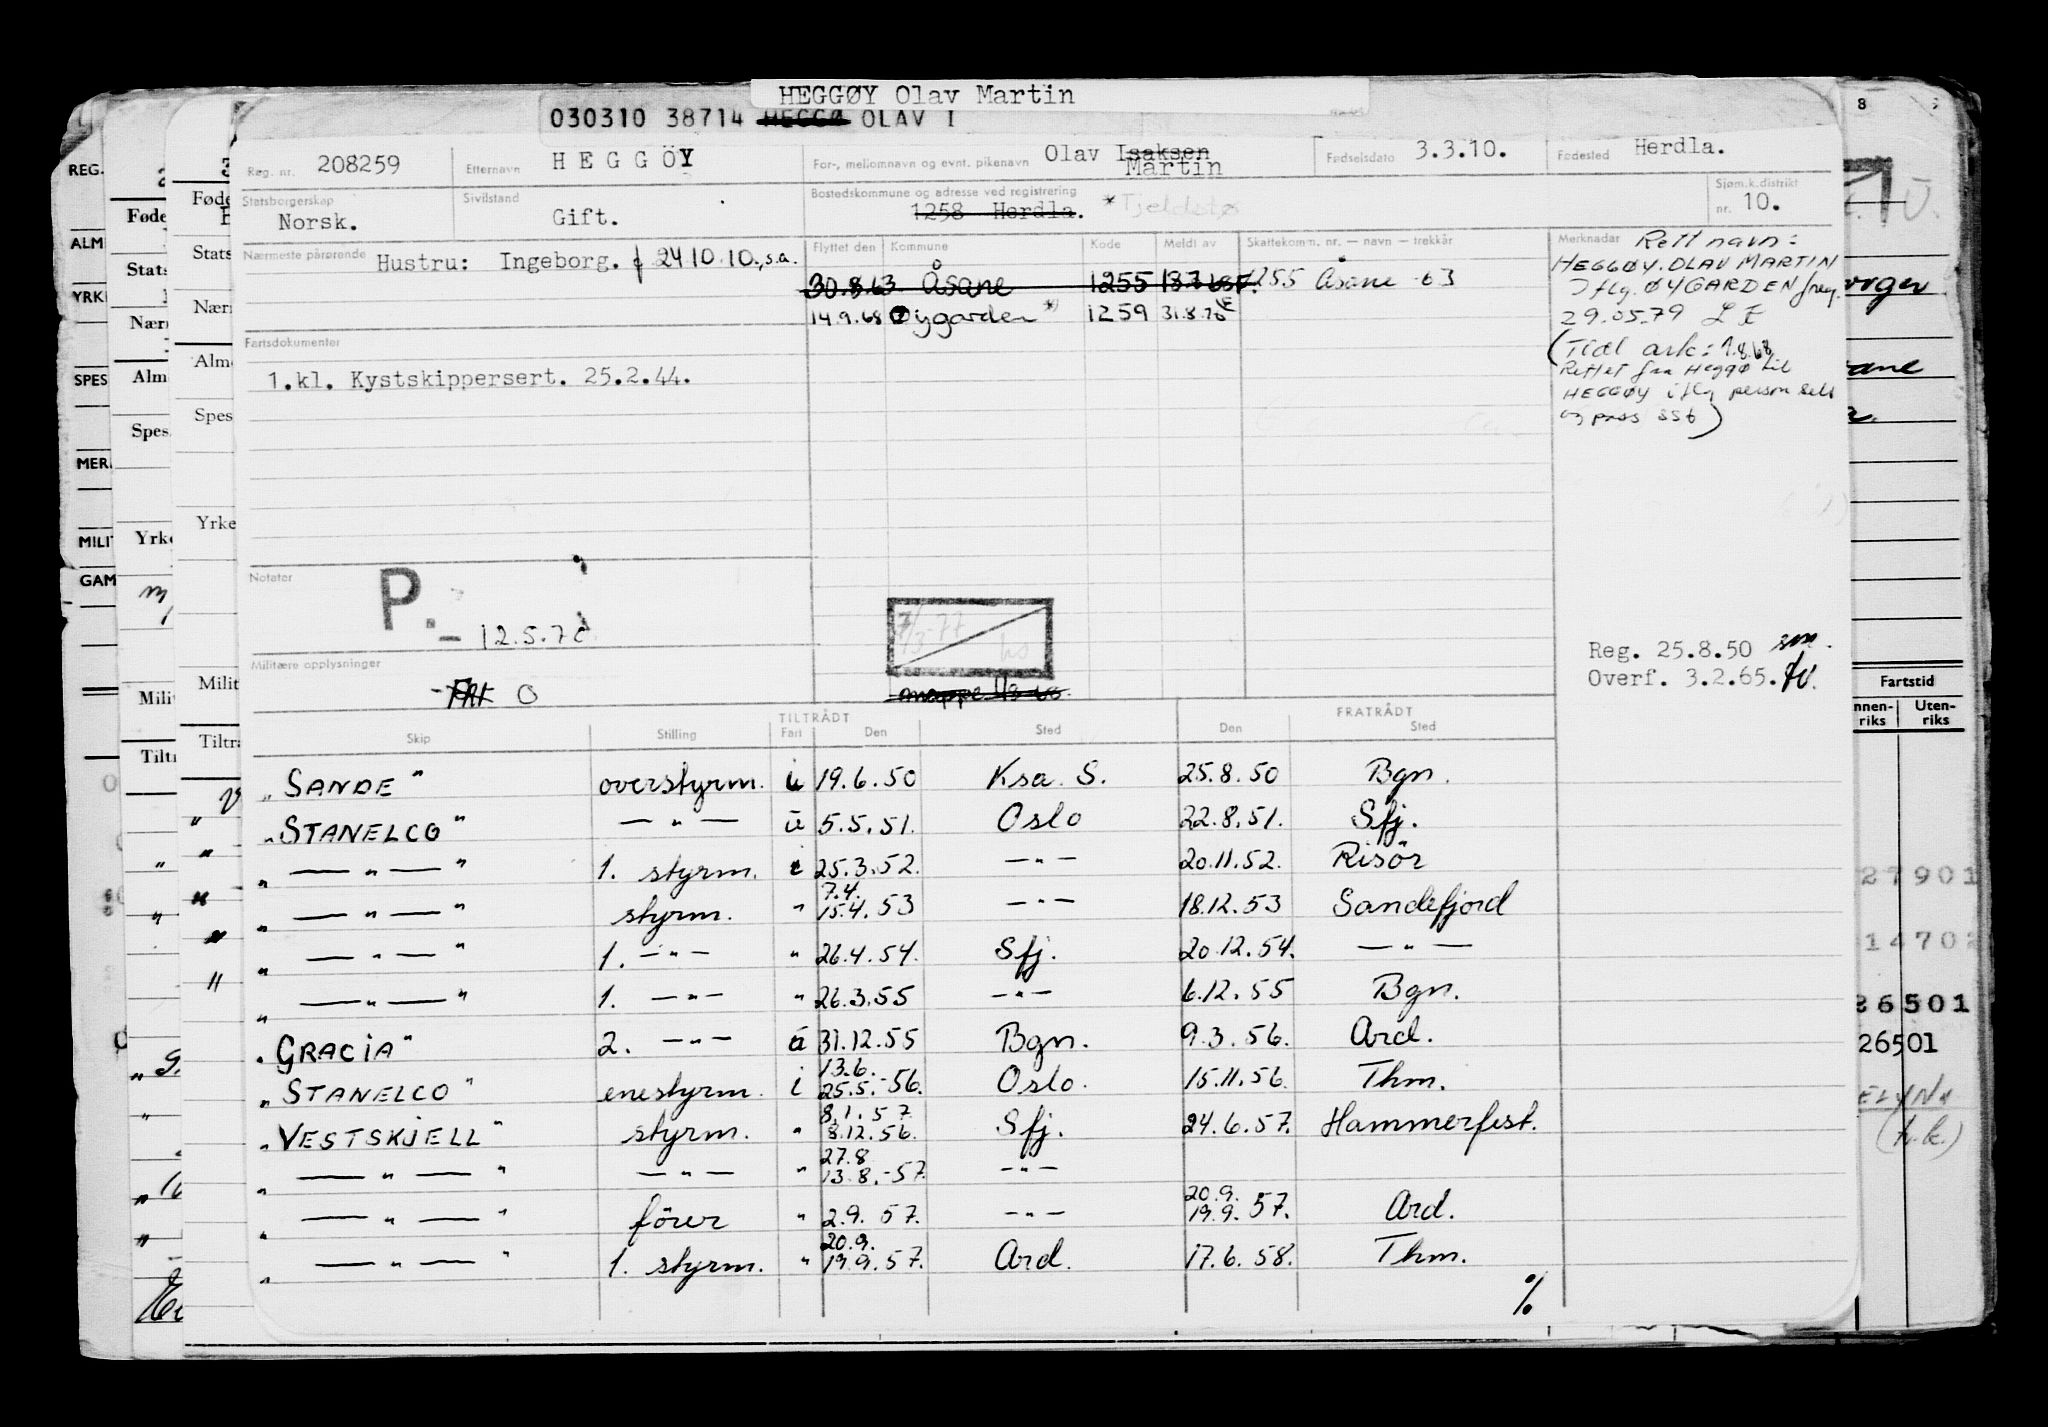 HEGGØY Olav Martin
030310 38714 HEGGØ OLAV I
Reg. nr. 208259 Etternavn HEGGÖY For-, mellomnavn og evnt. pikenavn Olav Isaksen Martin Fødselsdato 3.3.10. Fødested Herdla.
Statsborgerskap Norsk. Sivilstand Gift. Bostedskommune og adresse ved registrering 1258 Herdla. *Tjeldstø Sjøm.k.distrikt nr. 10.
Nærmeste pårørende Hustru: Ingeborg. f 24 10.10., s.a.
Flyttet den Kommune Kode Meldt av Skattekomm. nr. — navn — trekkår
30.8.63 Åsane 1255 1255 Åsane 63
14.9.68 Øygarden *) 1259 31.8.70
Merknader Rett navn:
HEGGØY, OLAV MARTIN
Iflg. ØYGARDEN f/reg.
29.05.79
(Tidl ark: 1.8.68
Rettet fra Heggø til
HEGGØY iflg person selv
og pass 556)
Fartsdokumenter
1.kl. Kystskippersert. 25.2.44.
Notater
P. - 12.5.70
7/3-77 hs
Militære opplysninger
O
Reg. 25.8.50 sm.
Overf. 3.2.65.
Skip Stilling TILTRÅDT Fart Den Sted FRATRÅDT Den Sted
"SANDE" overstyrm. u 19.6.50 Ksa. S. 25.8.50 Bgn.
"STANELCO" — " — u 5.5.51. Oslo 22.8.51. Sfj.
" — " — " 1. styrm. i 25.3.52. — " — 20.11.52. Risör
" — " — " styrm. " 7.4. 15.4.53 — " — 18.12.53 Sandefjord
" — " — " 1. — " — " 26.4.54. Sfj. 20.12.54. — " —
" — " — " 1. — " — " 26.3.55 — " — 6.12.55 Bgn.
"GRACIA" 2. — " — u 31.12.55 Bgn. 9.3.56. Ard.
"STANELCO" enestyrm. i 13.6. 25.5.-56. Oslo. 15.11.56. Thm.
"VESTSKJELL" styrm. " 8.1.57 8.12.56. Sfj. 24.6.57. Hammerfest.
" — " — " — " — " 27.8 13.8.-57. — " —
" — " — " förer " 2.9.57. — " — 20.9. 19.9.57. Ard.
" — " — " 1. styrm. " 20.9. 19.9.57. Ard. 17.6.58. Thm.
%
REG.
ALM
YRK
SPES
MER
MILI
GAM
Føde
Stats
Nær
Alm
Spes.
Yrke
Mili
Tilt
Føde
Stats
Nær
Alme
Spes
Yrke
Milit
Tiltr
8
Fartstid
Innen-riks Uten-riks
27901
14702
26501
26501
(t.k.)